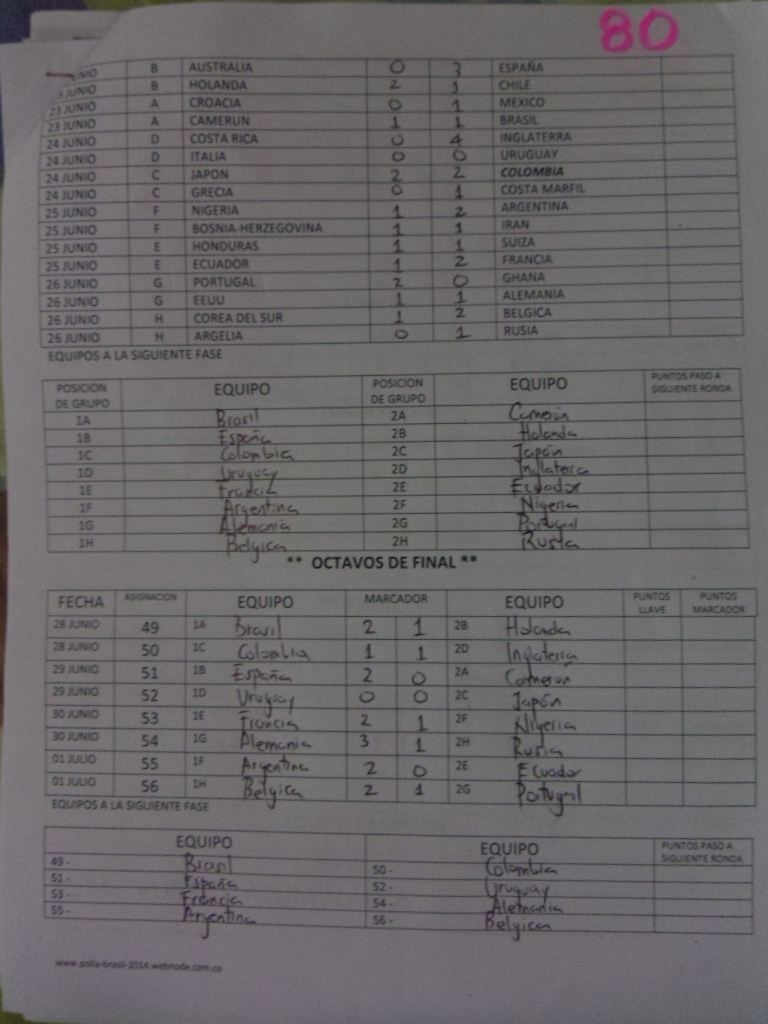 80
JUNIO B AUSTRALIA 0 3 ESPAÑA
JUNIO B HOLANDA 2 1 CHILE
23 JUNIO A CROACIA 0 1 MEXICO
23 JUNIO A CAMERUN 1 1 BRASIL
24 JUNIO D COSTA RICA 0 4 INGLATERRA
24 JUNIO D ITALIA 0 0 URUGUAY
24 JUNIO C JAPON 2 2 COLOMBIA
24 JUNIO C GRECIA 0 1 COSTA MARFIL
25 JUNIO F NIGERIA 1 2 ARGENTINA
25 JUNIO F BOSNIA-HERZEGOVINA 1 1 IRAN
25 JUNIO E HONDURAS 1 1 SUIZA
25 JUNIO E ECUADOR 1 2 FRANCIA
26 JUNIO G PORTUGAL 2 0 GHANA
26 JUNIO G EEUU 1 1 ALEMANIA
26 JUNIO H COREA DEL SUR 1 2 BELGICA
26 JUNIO H ARGELIA 0 1 RUSIA
EQUIPOS A LA SIGUIENTE FASE
POSICION DE GRUPO EQUIPO POSICION DE GRUPO EQUIPO PUNTOS PASO A SIGUIENTE RONDA
1A Brasil 2A Camerún
1B España 2B Holanda
1C Colombia 2C Japón
1D Uruguay 2D Inglaterra
1E Francia 2E Ecuador
1F Argentina 2F Nigeria
1G Alemania 2G Portugal
1H Belgica 2H Rusia
** OCTAVOS DE FINAL **
FECHA ASIGNACION EQUIPO MARCADOR EQUIPO PUNTOS LLAVE PUNTOS MARCADOR
28 JUNIO 49 1A Brasil 2 1 2B Holanda
28 JUNIO 50 1C Colombia 1 1 2D Inglaterra
29 JUNIO 51 1B España 2 0 2A Camerun
29 JUNIO 52 1D Uruguay 0 0 2C Japón
30 JUNIO 53 1E Francia 2 1 2F Nigeria
30 JUNIO 54 1G Alemania 3 1 2H Rusia
01 JULIO 55 1F Argentina 2 0 2E Ecuador
01 JULIO 56 1H Belgica 2 1 2G Portugal
EQUIPOS A LA SIGUIENTE FASE
EQUIPO EQUIPO PUNTOS PASO A SIGUIENTE RONDA
49 - Brasil 50 - Colombia
51 - España 52 - Uruguay
53 - Francia 54 - Alemania
55 - Argentina 56 - Belgica
www.polla-brasil-2014.webnode.com.co